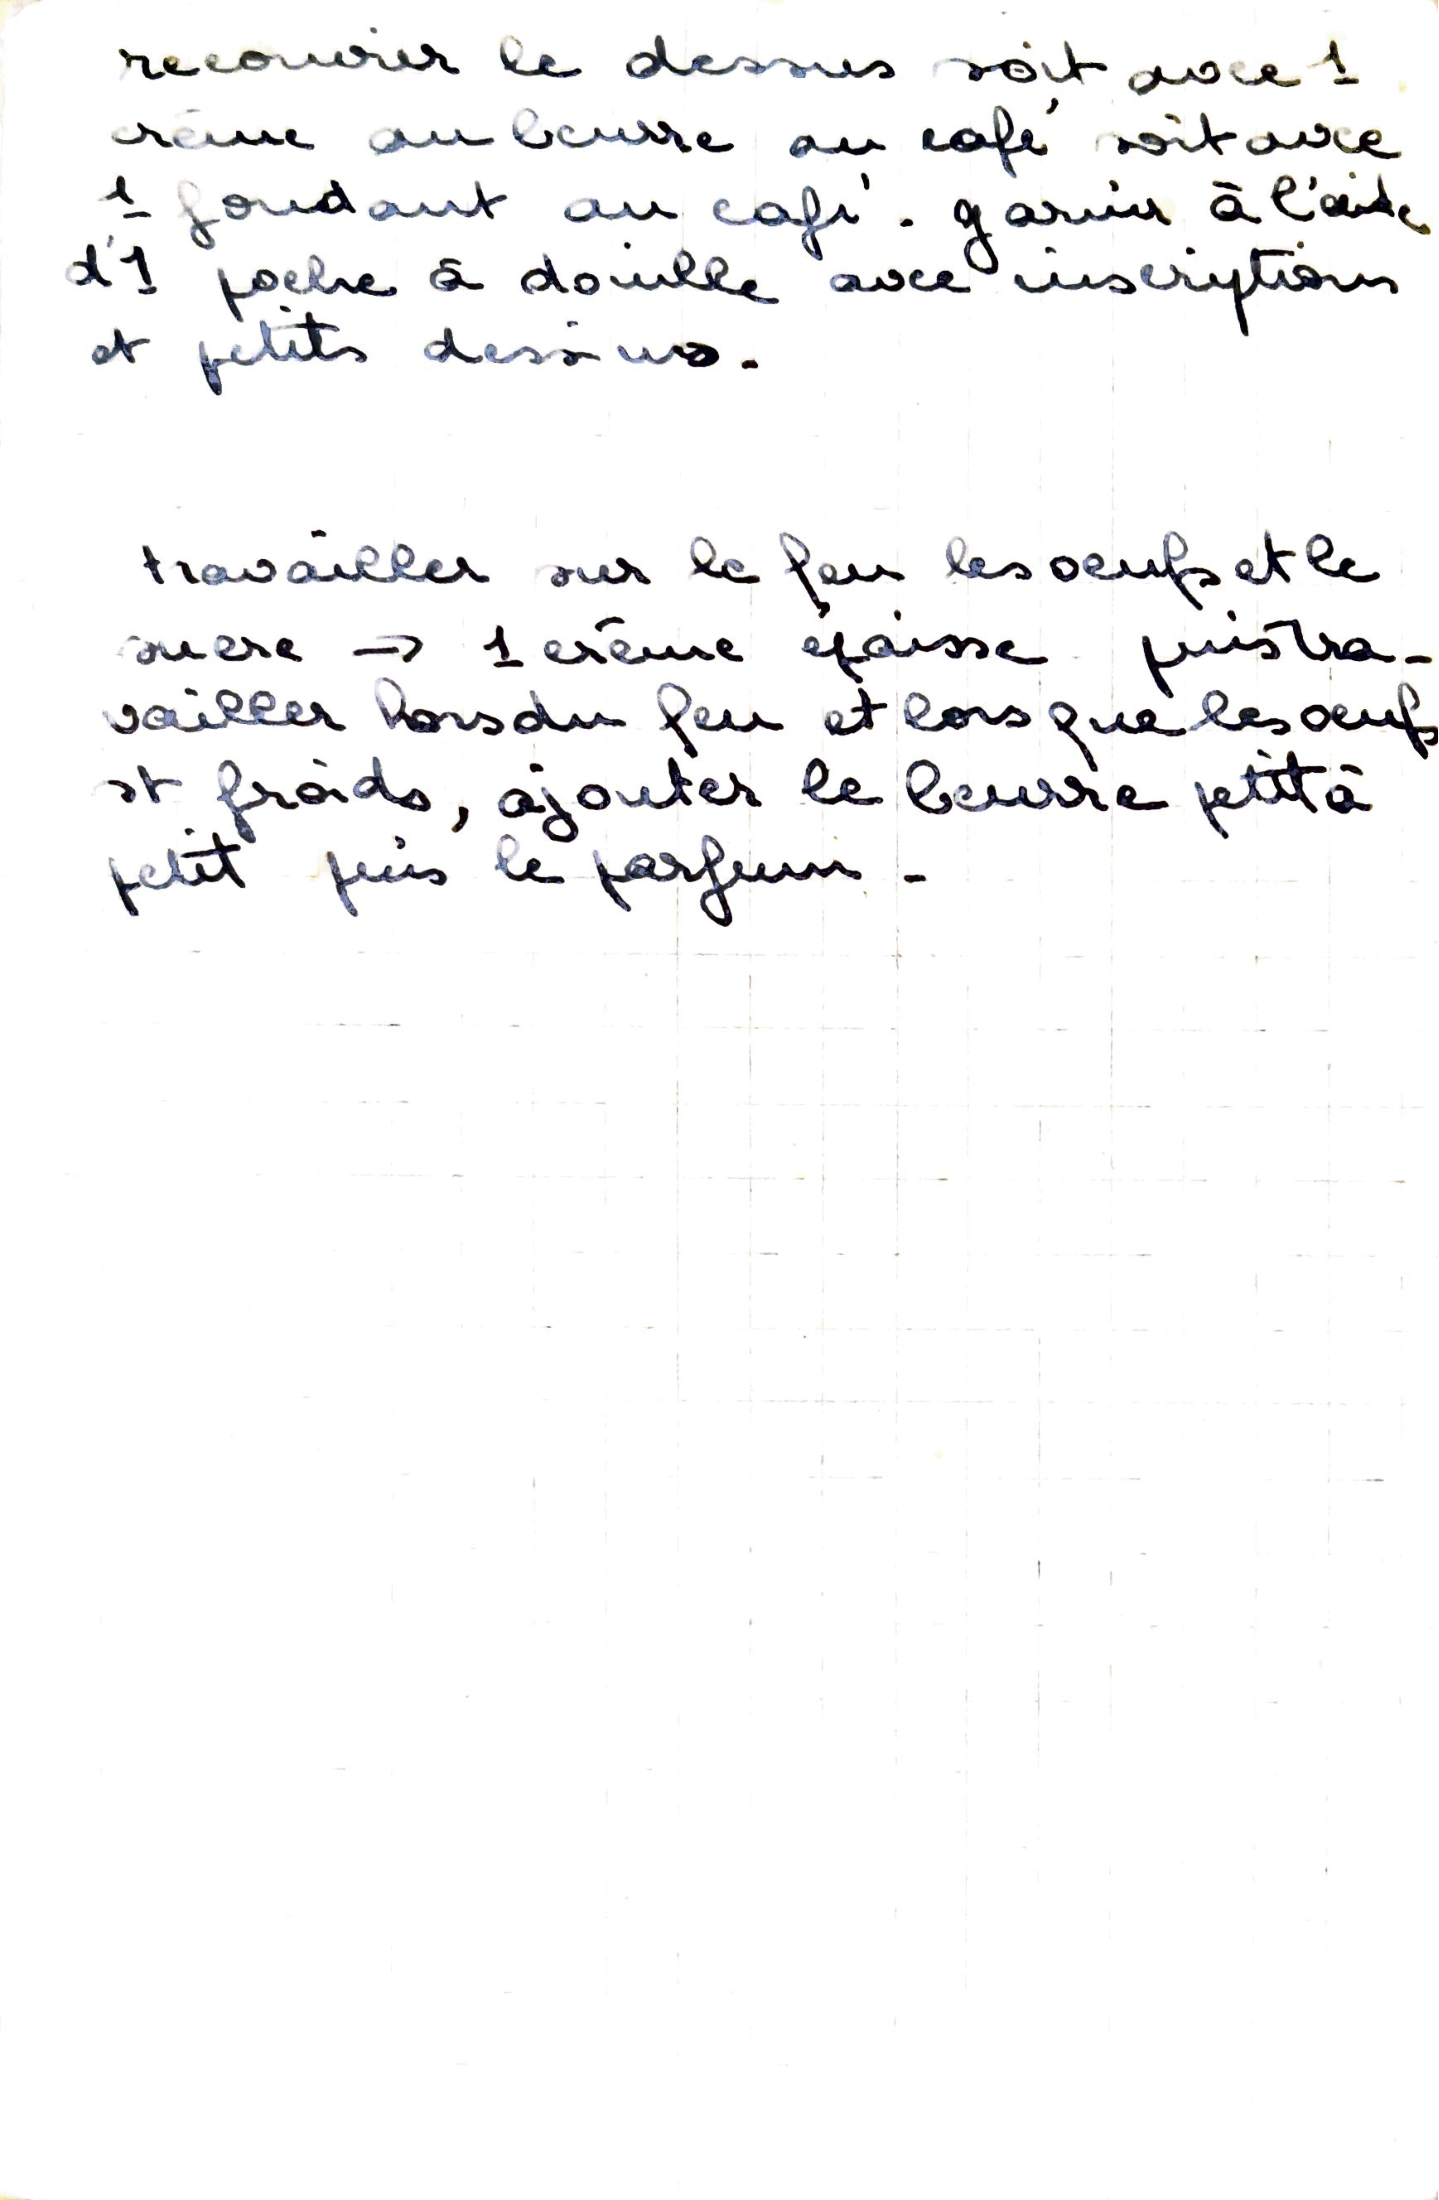 recouvrir le dessus soit avec 1
crème au beurre au café soit avec
1 fondant au café. garnir à l'aide
d'1 poche à douille avec inscriptions
et petits dessins.
travailler sur le feu les oeufs et le
sucre → 1 crème épaisse puis tra-
vailler hors du feu et lorsque les oeufs
st froids, ajouter le beurre petit à
petit puis le parfum.